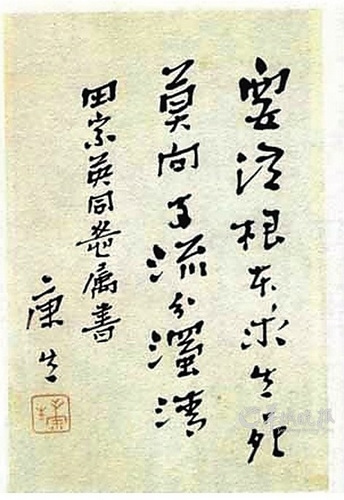 要從根本求生死
莫向支流分濁清
田家英同志属書
康生